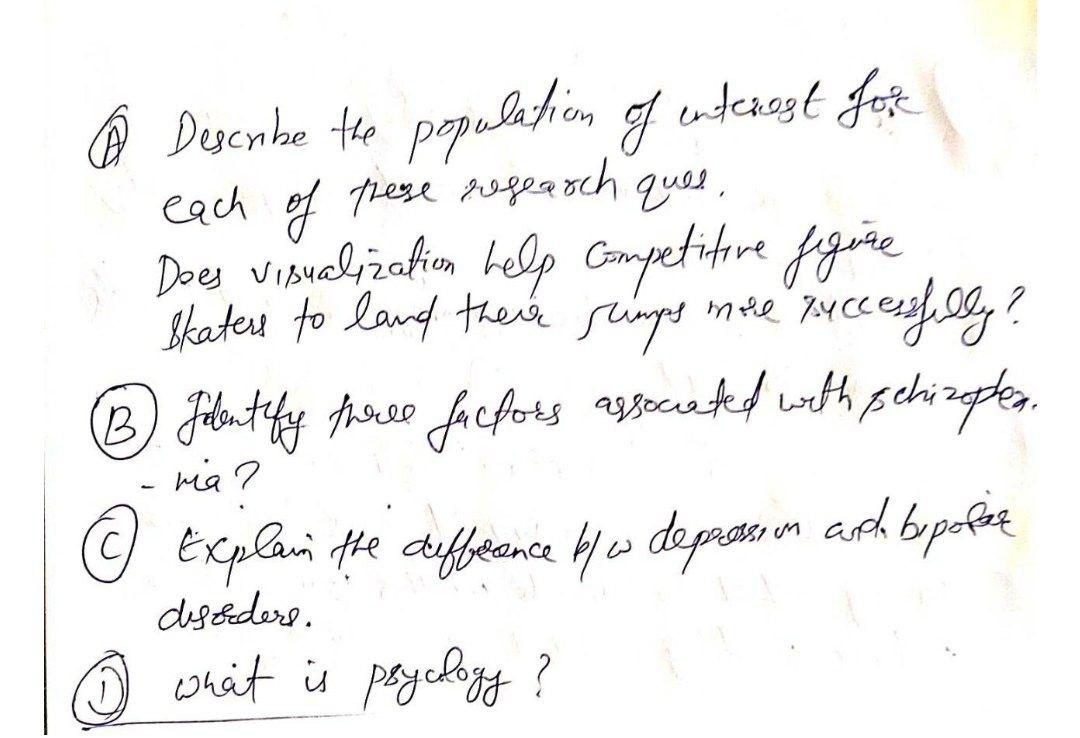 (A) Describe the population of interest for
each of these research ques.
Does visualization help Competitive figure
Skaters to land their jumps more successfully?
(B) Identify three factors associated with schizophr.
- nia?
(C) Explain the difference b/w depression and bipolar
disorders.
(D) what is psycology?